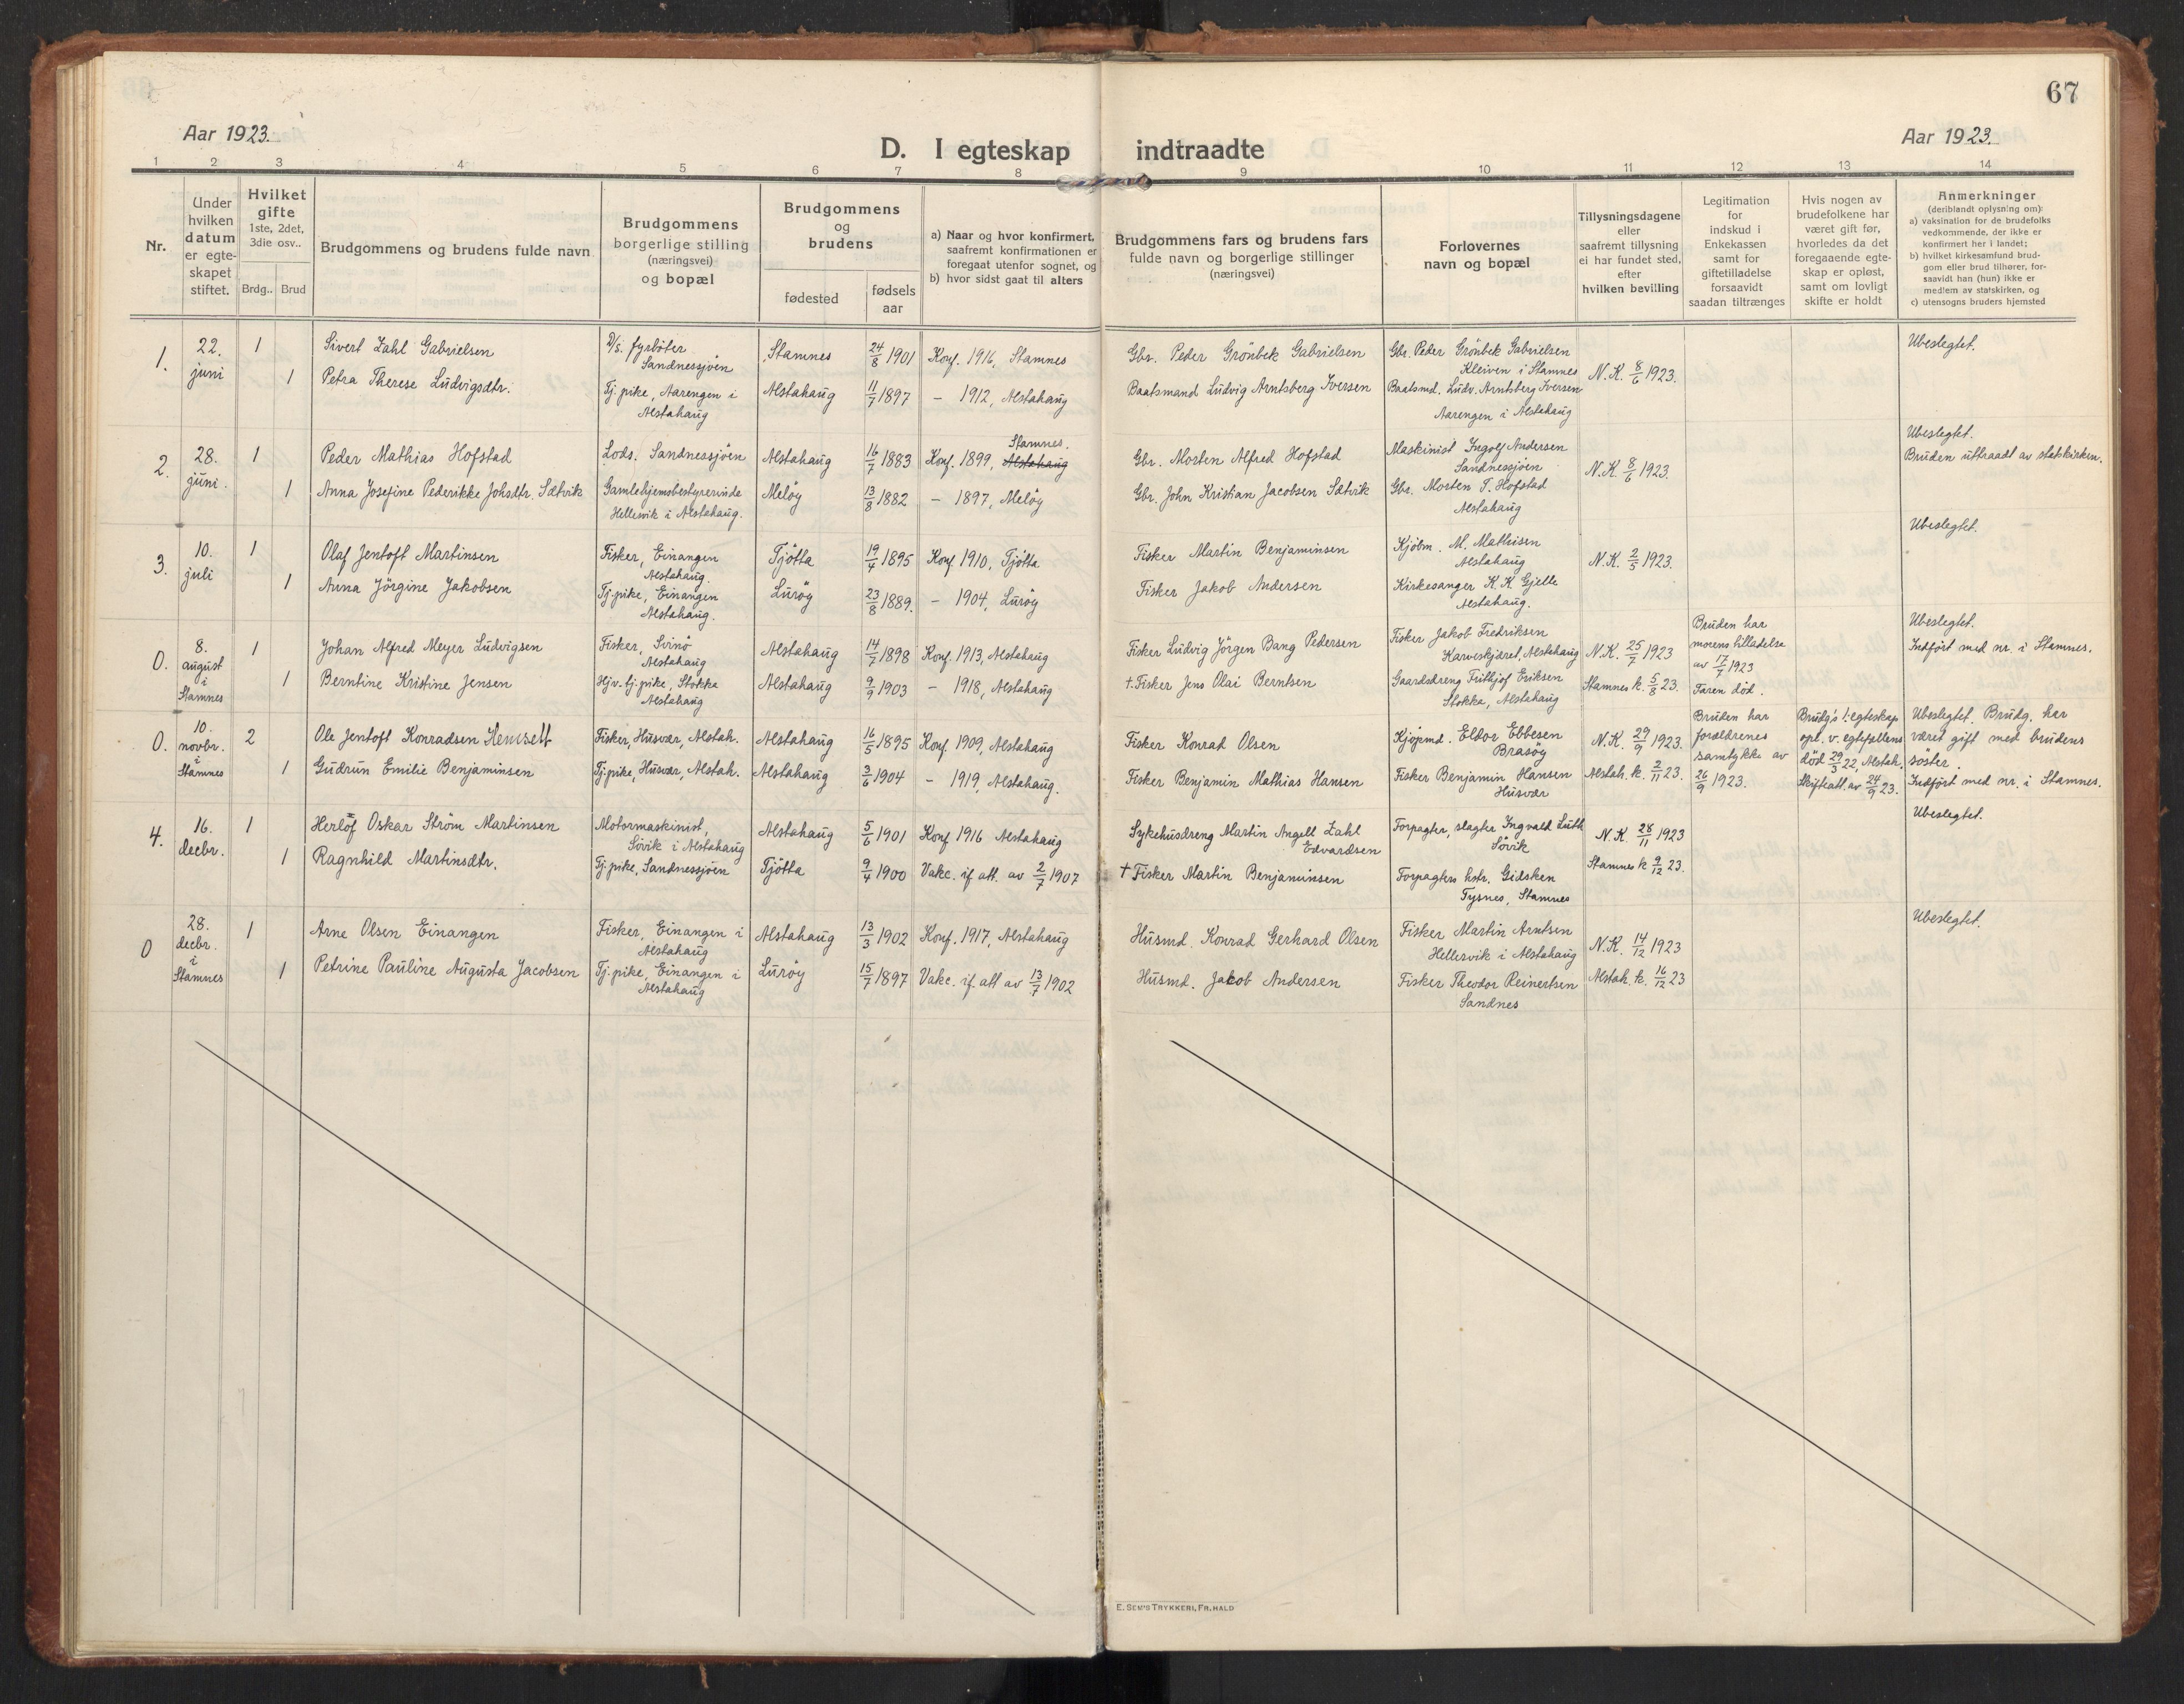 67
Aar 1923.
Aar 1923.
D. I egteskap indtraadte
1 2 3 4 5 6 7 8 9 10 11 12 13 14
Nr.
Under
hvilken
datum
er egte-
skapet
stiftet.
Hvilket
gifte
1ste, 2det,
3die osv..
Brdg.. Brud
Brudgommens og brudens fulde navn
Brudgommens
borgerlige stilling
(næringsvei)
og bopæl
Brudgommens
og
brudens
fødested
fødsels
aar
a) Naar og hvor konfirmert,
saafremt konfirmationen er
foregaat utenfor sognet, og
b) hvor sidst gaat til alters
Brudgommens fars og brudens fars
fulde navn og borgerlige stillinger
(næringsvei)
Forlovernes
navn og bopæl
Tillysningsdagene
eller
saafremt tillysning
ei har fundet sted,
efter
hvilken bevilling
Legitimation
for
indskud i
Enkekassen
samt for
giftetilladelse
forsaavidt
saadan tiltrænges
Hvis nogen av
brudefolkene har
været gift før,
hvorledes da det
foregaaende egte-
skap er opløst,
samt om lovligt
skifte er holdt
Anmerkninger
(deriblandt oplysning om):
a) vaksination for de brudefolks
vedkommende, der ikke er
konfirmert her i landet;
b) hvilket kirkesamfund brud-
gom eller brud tilhører, for-
saavidt han (hun) ikke er
medlem av statskirken, og
c) utensogns bruders hjemsted
1.
22.
juni
1
1
Sivert Zahl Gabrielsen
Petra Therese Ludvigsdtr.
D/s. fyrbøter
Sandnessjøen
Tj. pike, Aarengen i
Alstahaug
Stamnes
Alstahaug
24/8 1901
11/7 1897
Konf. 1916, Stamnes
– 1912, Alstahaug
Gbr. Peder Grönbek Gabrielsen
Baatsmand Ludvig Arntsberg Iversen
Gbr. Peder Grönbek Gabrielsen
Kleiven i Stamnes
Baatsmd. Ludv. Arntsberg Iversen
Aarengen i Alstahaug
N.K. 8/6 1923.
Ubeslegtet.
2.
28.
juni.
1
1
Peder Mathias Hofstad
Anna Josefine Pederikke Johsdtr. Sætvik
Lods. Sandnessjöen
Gamlehjemsbestyrerinde
Hellesvik i Alstahaug.
Alstahaug
Melöy
16/7 1883
13/8 1882
Stamnes.
Konf. 1899, Alstahaug
– 1897, Melöy
Gbr. Morten Alfred Hofstad
Gbr. John Kristian Jacobsen Sætvik
Maskinist Ingolf Andersen
Sandnessjöen
Gbr. Morten T. Hofstad
Alstahaug
N.K. 8/6 1923.
Ubeslegtet.
Bruden uttraadt av statskirken.
3.
10.
juli
1
1
Olaf Jentoft Martinsen
Anna Jörgine Jakobsen
Fisker, Einangen
Alstahaug.
Tj. pike, Einangen
Alstahaug.
Tjötta
Luröy
19/4 1895
23/8 1889.
Konf. 1910, Tjötta
– 1904, Luröy
Fisker Martin Benjaminsen
Fisker Jakob Andersen
Kjöbm. M. Mathisen
Alstahaug
Kirkesanger K. K. Gjelle
Alstahaug.
N.K. 2/5 1923.
Ubeslegtet.
0.
8.
august
i
Stamnes
1
1
Johan Alfred Meyer Ludvigsen
Berntine Kristine Jensen
Fisker, Svinö
Alstahaug
Hjv. tj. pike, Stokka
Alstahaug
Alstahaug
Alstahaug
14/7 1898
9/9 1903
Konf. 1913, Alstahaug
– 1918, Alstahaug
Fisker Ludvig Jörgen Bang Pedersen
†. Fisker Jens Olai Berntsen
Fisker Jakob Fredriksen
Karveskjæret, Alstahaug
Gaardsdreng Frithjof Eriksen
Stokka, Alstahaug
N.K. 25/7 1923
Stamnes k. 5/8 23.
Bruden har
morens tilladelse
av 17/7 1923
Faren död.
Ubeslegtet.
Indfört med nr. i Stamnes.
0.
10.
novbr.
i
Stamnes
2
1
Ole Jentoft Konradsen Hemselt
Gudrun Emilie Benjaminsen
Fisker, Husvær, Alstah.
Tj. pike, Husvær, Alstah.
Alstahaug
Alstahaug
16/5 1895
3/6 1904
Konf. 1909, Alstahaug
– 1919, Alstahaug.
Fisker Konrad Olsen
Fisker Benjamin Mathias Hansen
Kjöpmd. Eldor Ebbesen
Brasöy
Fisker Benjamin Hansen
Husvær
N.K. 29/9 1923.
Alstah. k. 2/11 23.
Bruden har
forældrenes
samtykke av
26/9 1923.
Brudg's 1. egteskap
opl. v. egtefællens
död 29/3 22, Alstah.
Skifteatt. av 24/9 23.
Ubeslegtet. Brudg. har
været gift med brudens
söster.
Indfört med nr. i Stamnes.
4.
16.
decbr.
1
1
Herlöf Oskar Ström Martinsen
Ragnhild Martinsdtr.
Motormaskinist,
Sövik i Alstahaug
Tj. pike, Sandnessjöen
Alstahaug
Tjötta
5/6 1901
9/4 1900
Konf 1916 Alstahaug
Vakc. if. att. av 2/7 1907
Sykehusdreng Martin Angell Zahl
Edvardsen
† Fisker Martin Benjaminsen
Forpagter, slagter Ingvald Luth
Sövik
Forpagters hstr. Gidsken
Tysnes, Stamnes
N.K. 28/11 1923
Stamnes k 9/12 23.
Ubeslegtet.
0
28.
decbr.
i
Stamnes
1
1
Arne Olsen Einangen
Petrine Pauline Augusta Jacobsen
Fisker, Einangen i
Alstahaug
Tj. pike, Einangen i
Alstahaug
Alstahaug
Luröy
13/3 1902
15/7 1897
Konf. 1917, Alstahaug
Vakc. if. att av 13/7 1902
Husmd. Konrad Gerhard Olsen
Husmd. Jakob Andersen
Fisker Martin Arntsen
Hellesvik i Alstahaug
Fisker Theodor Reinertsen
Sandnes
N.K. 14/12 1923
Alstah. k. 16/12 23
Ubeslegtet.
E. SEM'S TRYKKERI, FR.HALD